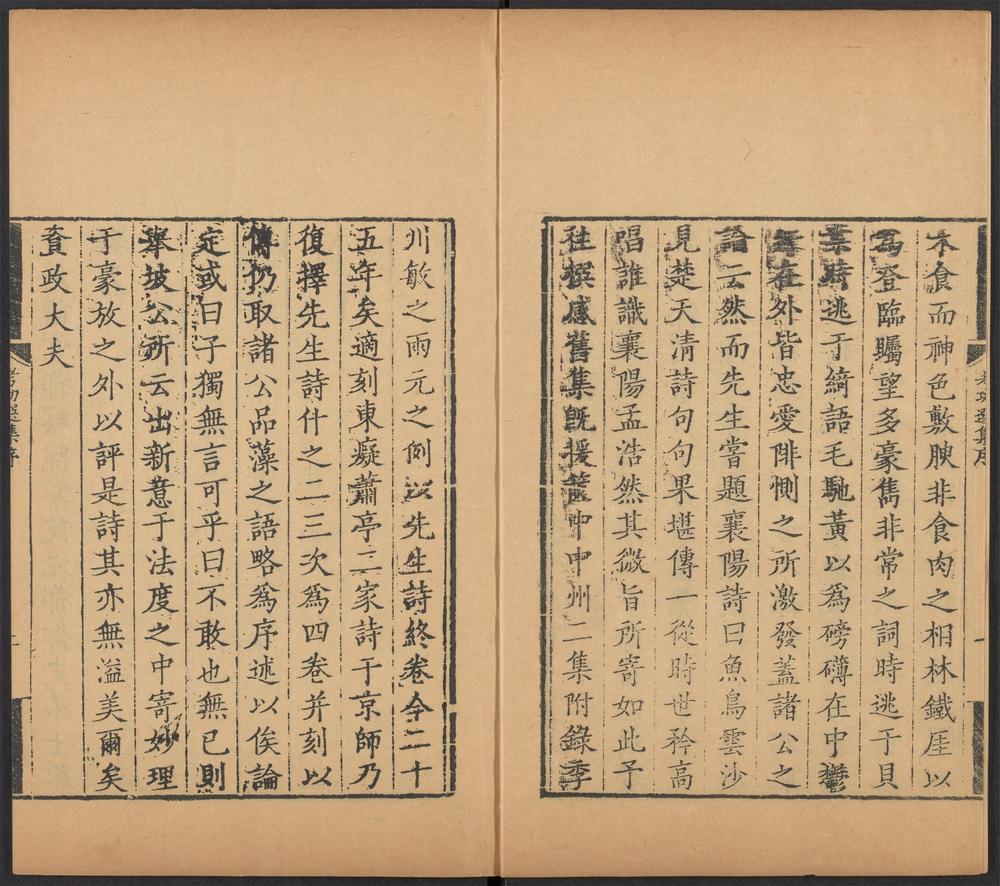 不食而神色敷腴非食肉之相林鐵厓以
爲登臨矚望多豪雋非常之詞時逃于貝
葉時逃于綺語毛馳黃以爲磅礴在中鬱
無在外皆忠愛悱惻之所激發蓋諸公之
論云然而先生嘗題襄陽詩曰魚鳥雲沙
見楚天清詩句句果堪傳一從時世矜高
唱誰識襄陽孟浩然其微旨所寄如此予
往撰感舊集既援篋中中州二集附錄季
川敏之兩元之例以先生詩終卷今二十
五年矣適刻東癡蕭亭二家詩于京師乃
復擇先生詩什之二三次爲四卷并刻以
傳仍取諸公品藻之語略爲序述以俟論
定或曰子獨無言可乎曰不敢也無已則
舉坡公所云出新意于法度之中寄妙理
于豪放之外以評是詩其亦無溢美爾矣
資政大夫
考功選集序
一
考功選集序
二